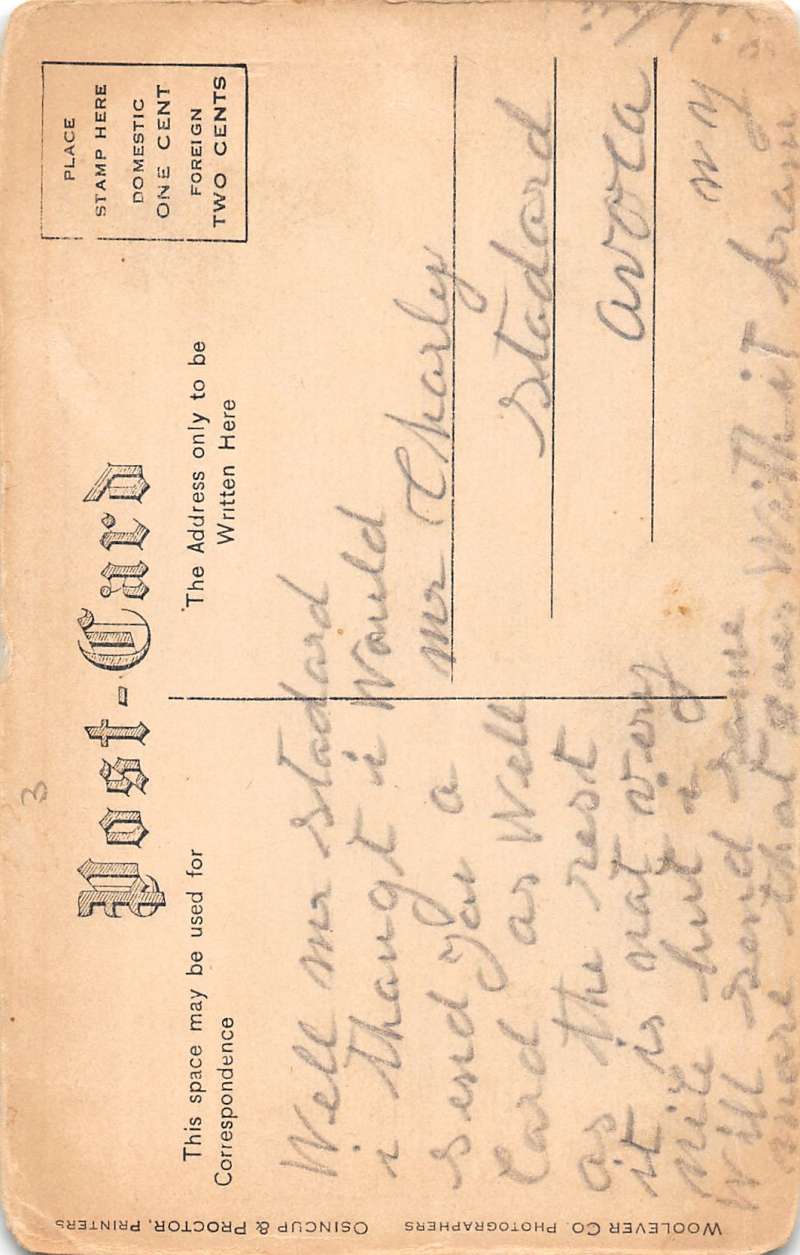 Post-Card
PLACE
STAMP HERE
DOMESTIC
ONE CENT
FOREIGN
TWO CENTS
This space may be used for
Correspondence
The Address only to be
Written Here
3
Well mr stadard
i thaugt i Would
send you a
Card as Well
as the rest
it is not very
nize but i
Will send some
more that With it from
mr Charly
stadard
avoca
n y
WOOLEVER CO. PHOTOGRAPHERS
OSINCUP & PROCTOR, PRINTERS